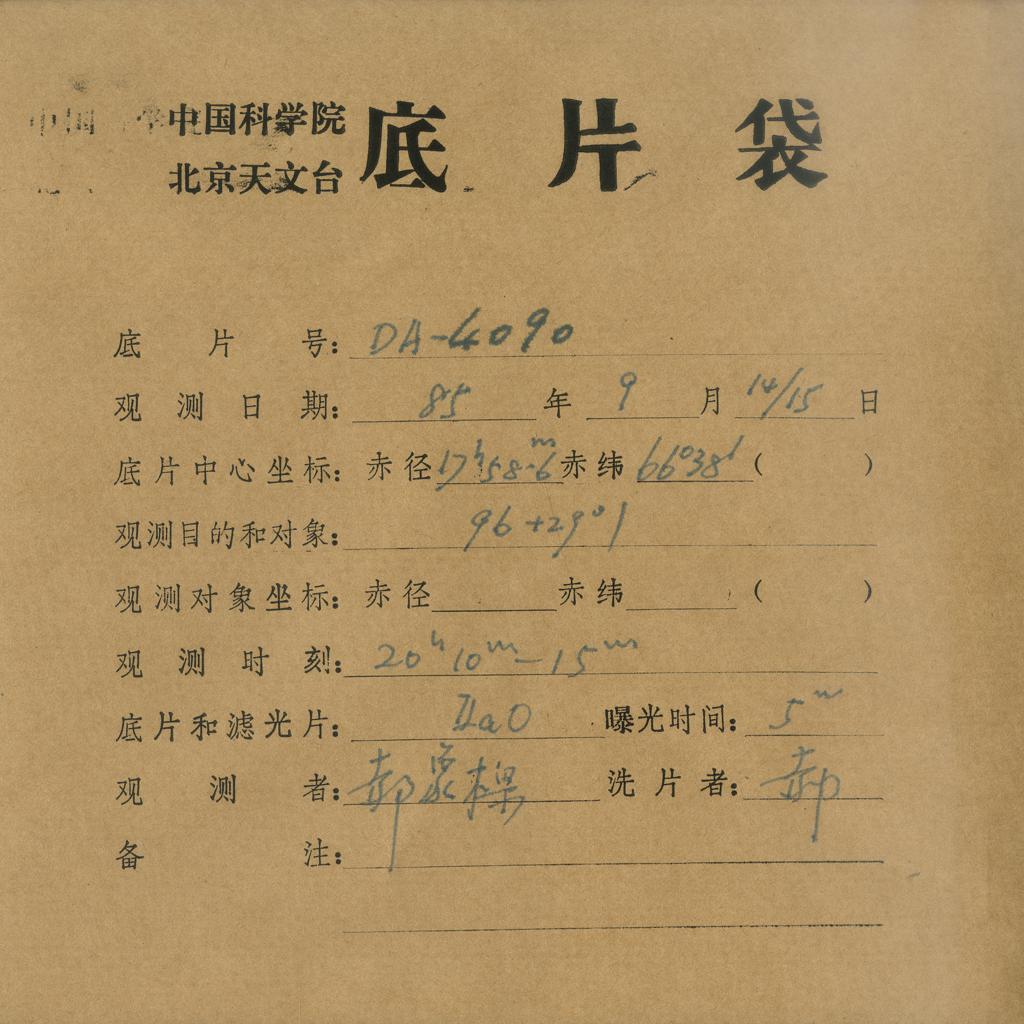 中国科学院
北京天文台
底片袋
底片号：DA-4090
观测日期：85年9月14/15日
底片中心坐标：赤径17h58.m6赤纬66°38′（ ）
观测目的和对象：96+29°1
观测对象坐标：赤径 赤纬 （ ）
观测时刻：20h10m-15m
底片和滤光片：IIaO 曝光时间：5m
观测者：郝象樑 洗片者：郝
备注：